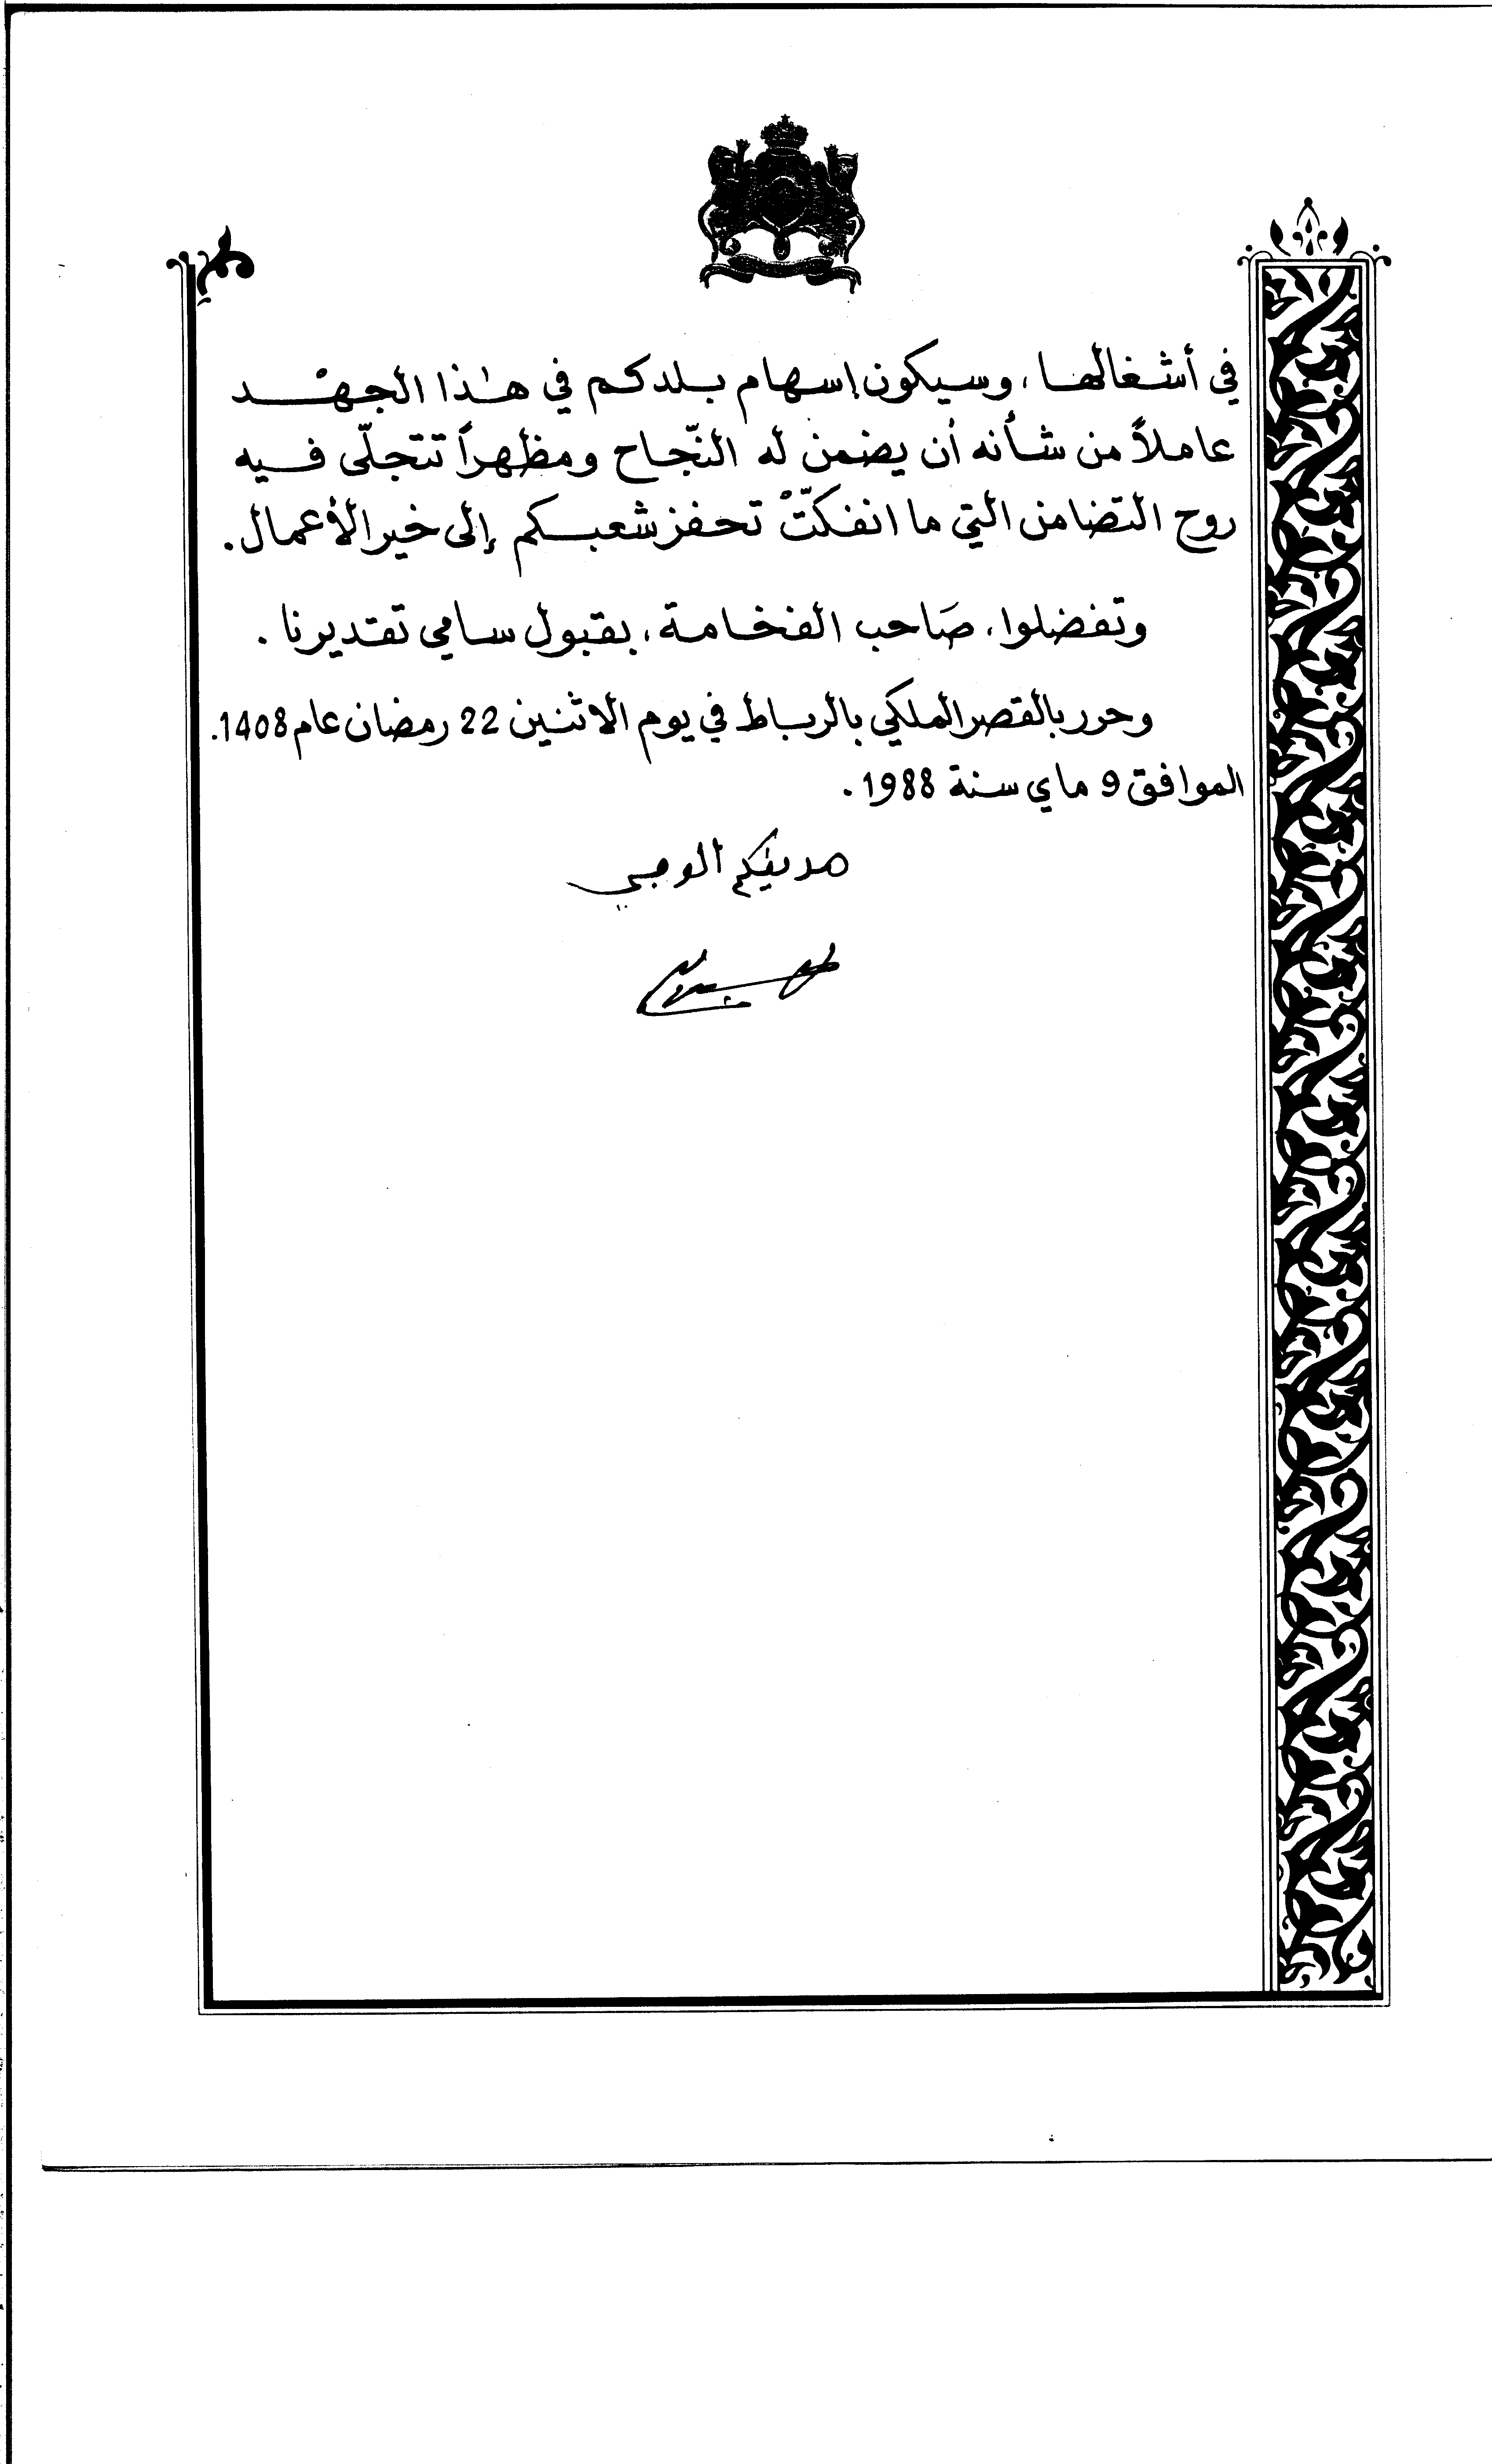 في أشغالها، وسيكون إسهام بلدكم في هٰذا الجهْد
عاملاً من شأنه أن يضمن له النّجاح ومظهراً تتجلّى فيه
روح التضامن التي ما انفكّتْ تحفز شعبكم إلى خير الأعمال.
وتفضلوا، صَاحب الفخامة، بقبول سامي تقديرنا.
وحرر بالقصر الملكي بالرباط في يوم الاثنين 22 رمضان عام 1408.
الموافق 9 ماي سنة 1988.
صديقكم الوفي